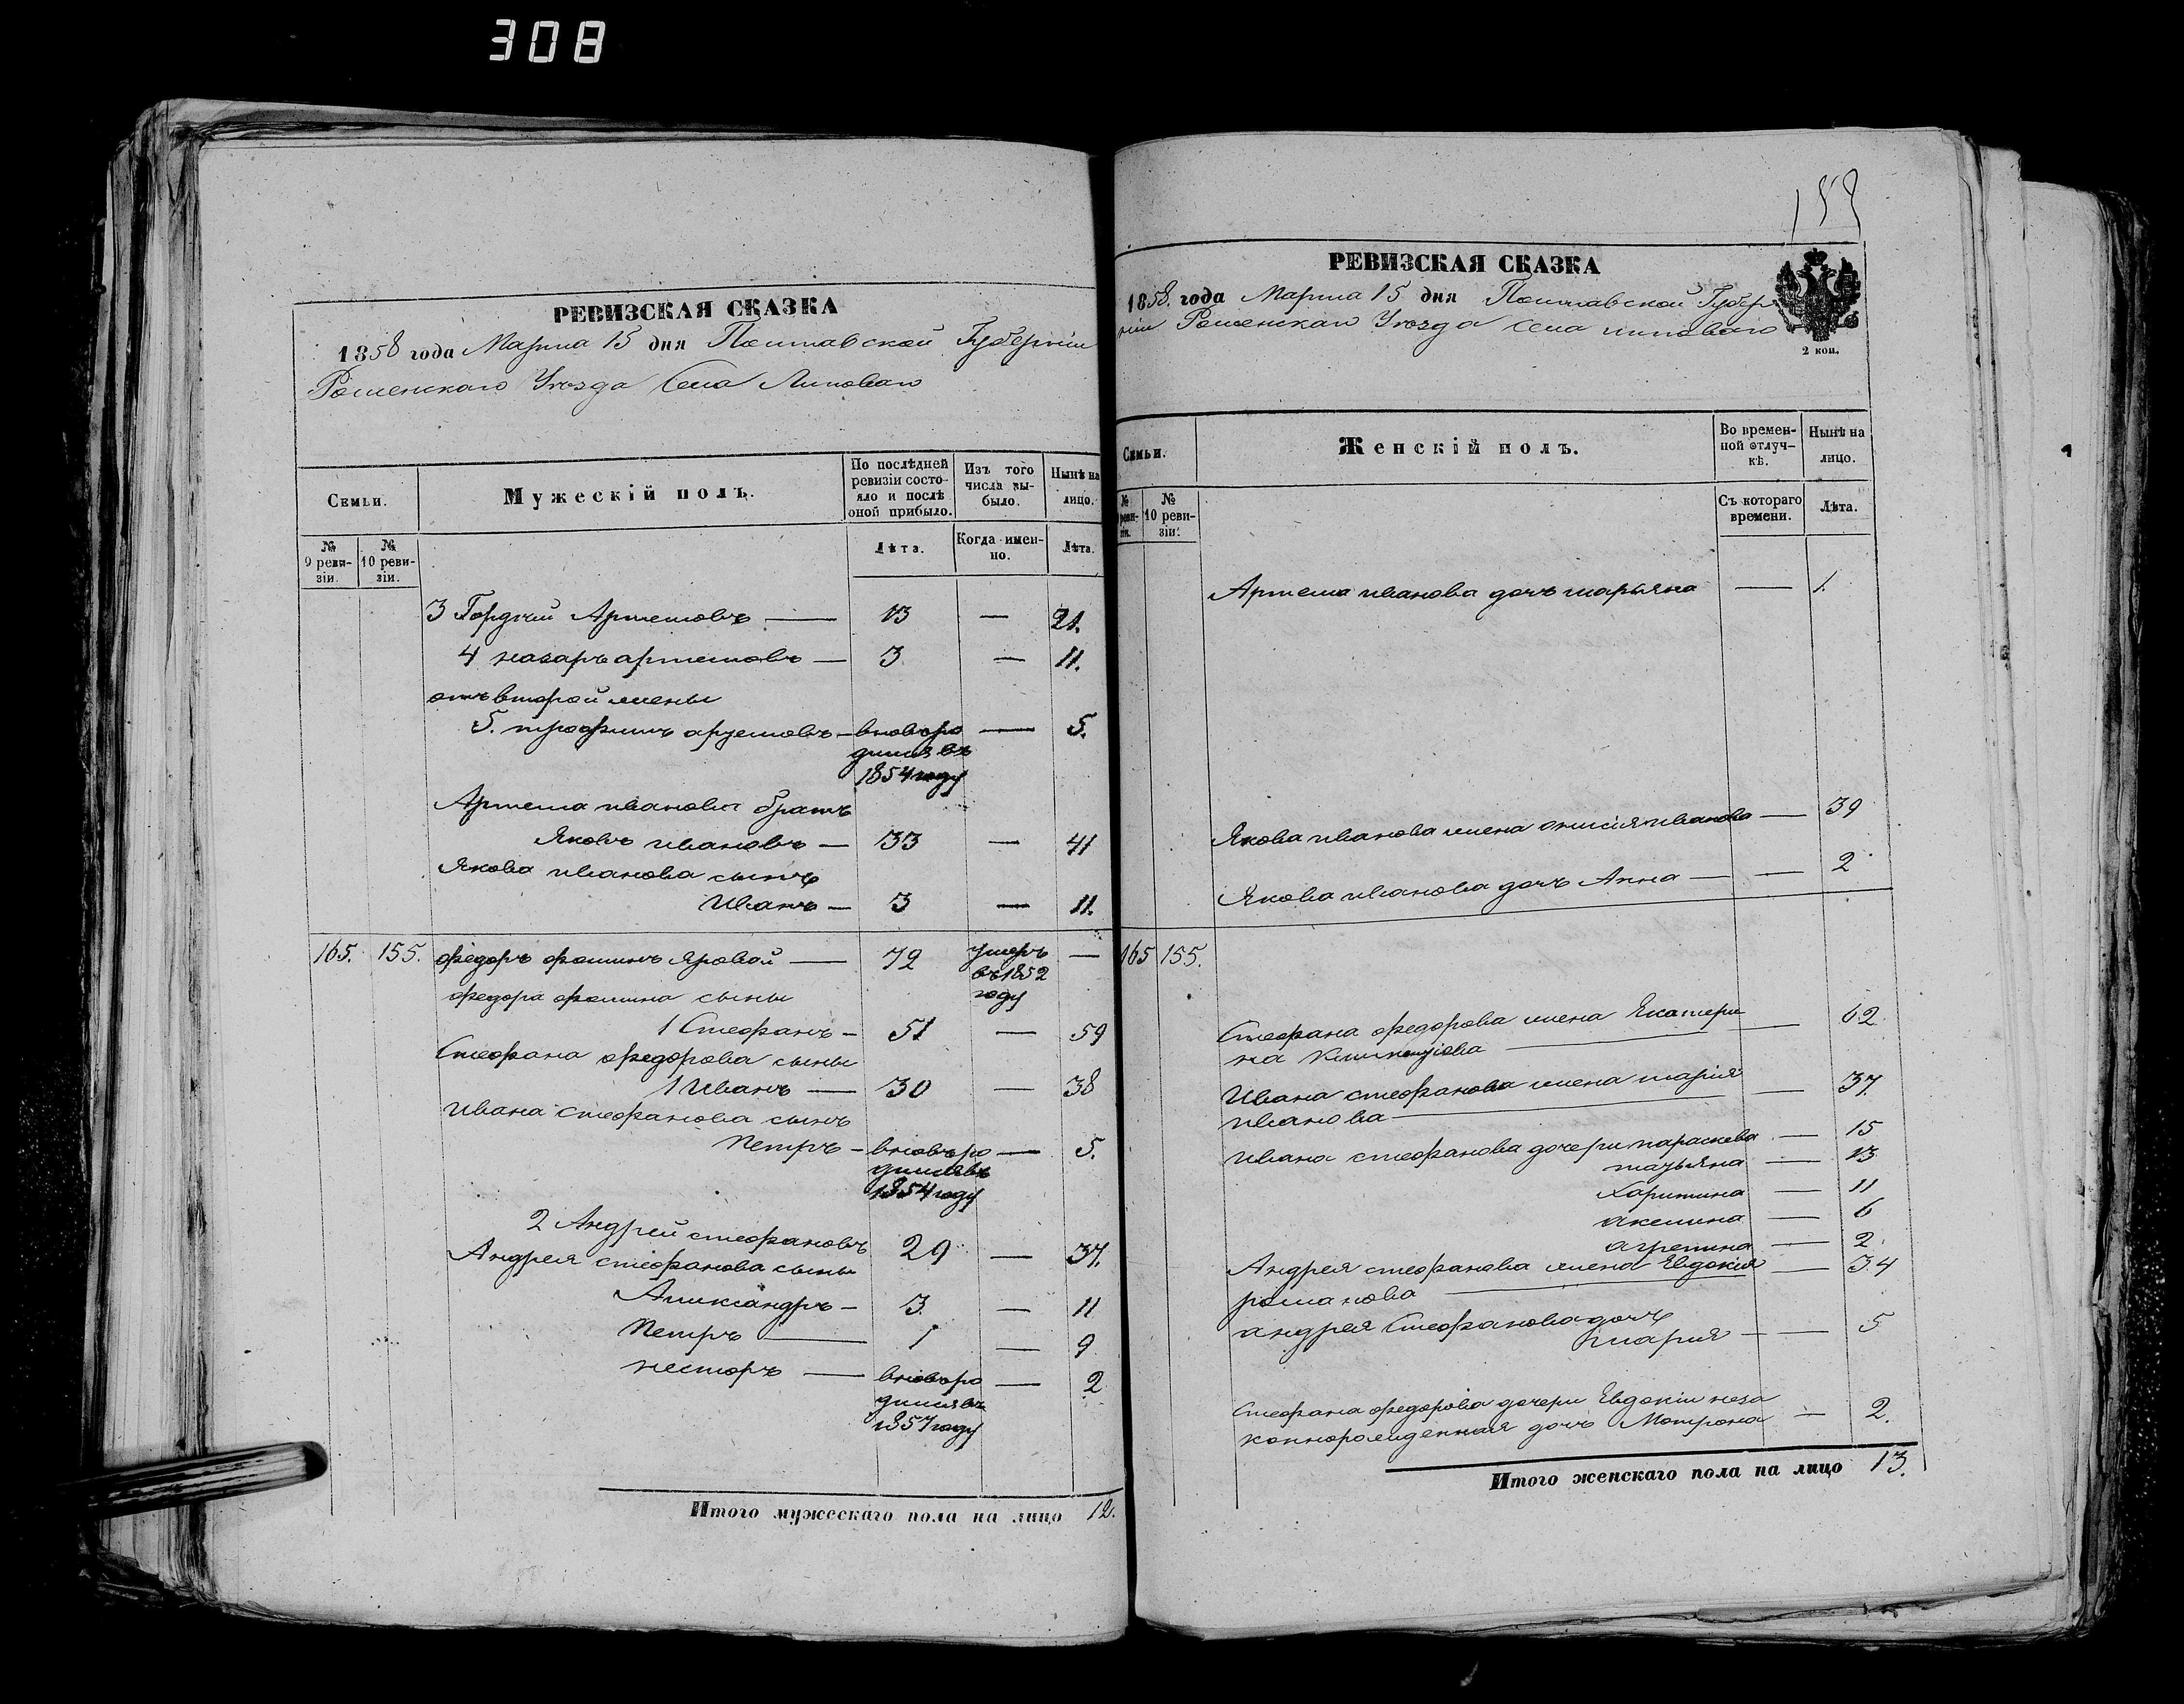 308
РЕВИЗСКАЯ СКАЗКА
1858 года Марта 15 дня Полтавской Губерніи
Роменскаго Уѣзда Села Липоваго
Семьи.
Мужескій полъ.
По послѣдней ревизіи состояло и послѣ оной прибыло.
Изъ того числа выбыло.
Нынѣ на лицо.
№ 9 ревизіи.
№ 10 ревизіи.
Лѣта.
Когда именно.
Лѣта.
3 Гордѣй Артемовъ — 13 — 21.
4 назаръ артемовъ — 3 — 11.
отъ второй жены
5. трофимъ артемовъ — вновь ро — 5.
дился въ
1854 году
Артема иванова братъ
Яковъ ивановъ — 33 — 41
Якова иванова сынъ
Иванъ — 3 — 11.
165. 155. федоръ фоминъ Яровой — 72 умеръ —
въ 1852
федора фомина сыны году
1 Стефанъ — 51 — 59
Стефана федорова сыны
1 Иванъ — 30 — 38
Ивана стефанова сынъ
Петръ — вновь ро — 5.
дился въ
1854 году
2 Андрей стефановъ 29 — 37.
Андрея стефанова сыны
Александръ — 3. — 11
Петръ — 1 — 9
несторъ — вновь ро — 2
дился въ
1857 году
Итого мужескаго пола на лицо 12.
159
РЕВИЗСКАЯ СКАЗКА
1858. года Марта 15 дня Полтавской Губер
ніи Роменскаго Уѣзда села липоваго
2 коп.
Семьи.
Женскій полъ.
Во временной отлучкѣ.
Нынѣ на лицо.
№ ревизіи.
№ 10 ревизіи.
Съ котораго времени.
Лѣта.
Артема иванова дочь марьяна — 1.
Якова иванова жена анисія иванова — 39
Якова иванова дочь Анна — — 2
165 155.
Стефана федорова жена Екатери — 62
на
Ивана стефанова жена марія — 37.
иванова —
Ивана стефанова дочери параскева — 15
татьяна — 13
харитина — 11
акелина — 6
агрепина — 2.
Андрея стефанова жена Евдокія — 34
романова —
андрея Стефанова дочь
марія — — 5
Стефана федорова дочери Евдокіи неза
коннорожденная дочь Мотрона — 2.
Итого женскаго пола на лицо 13.